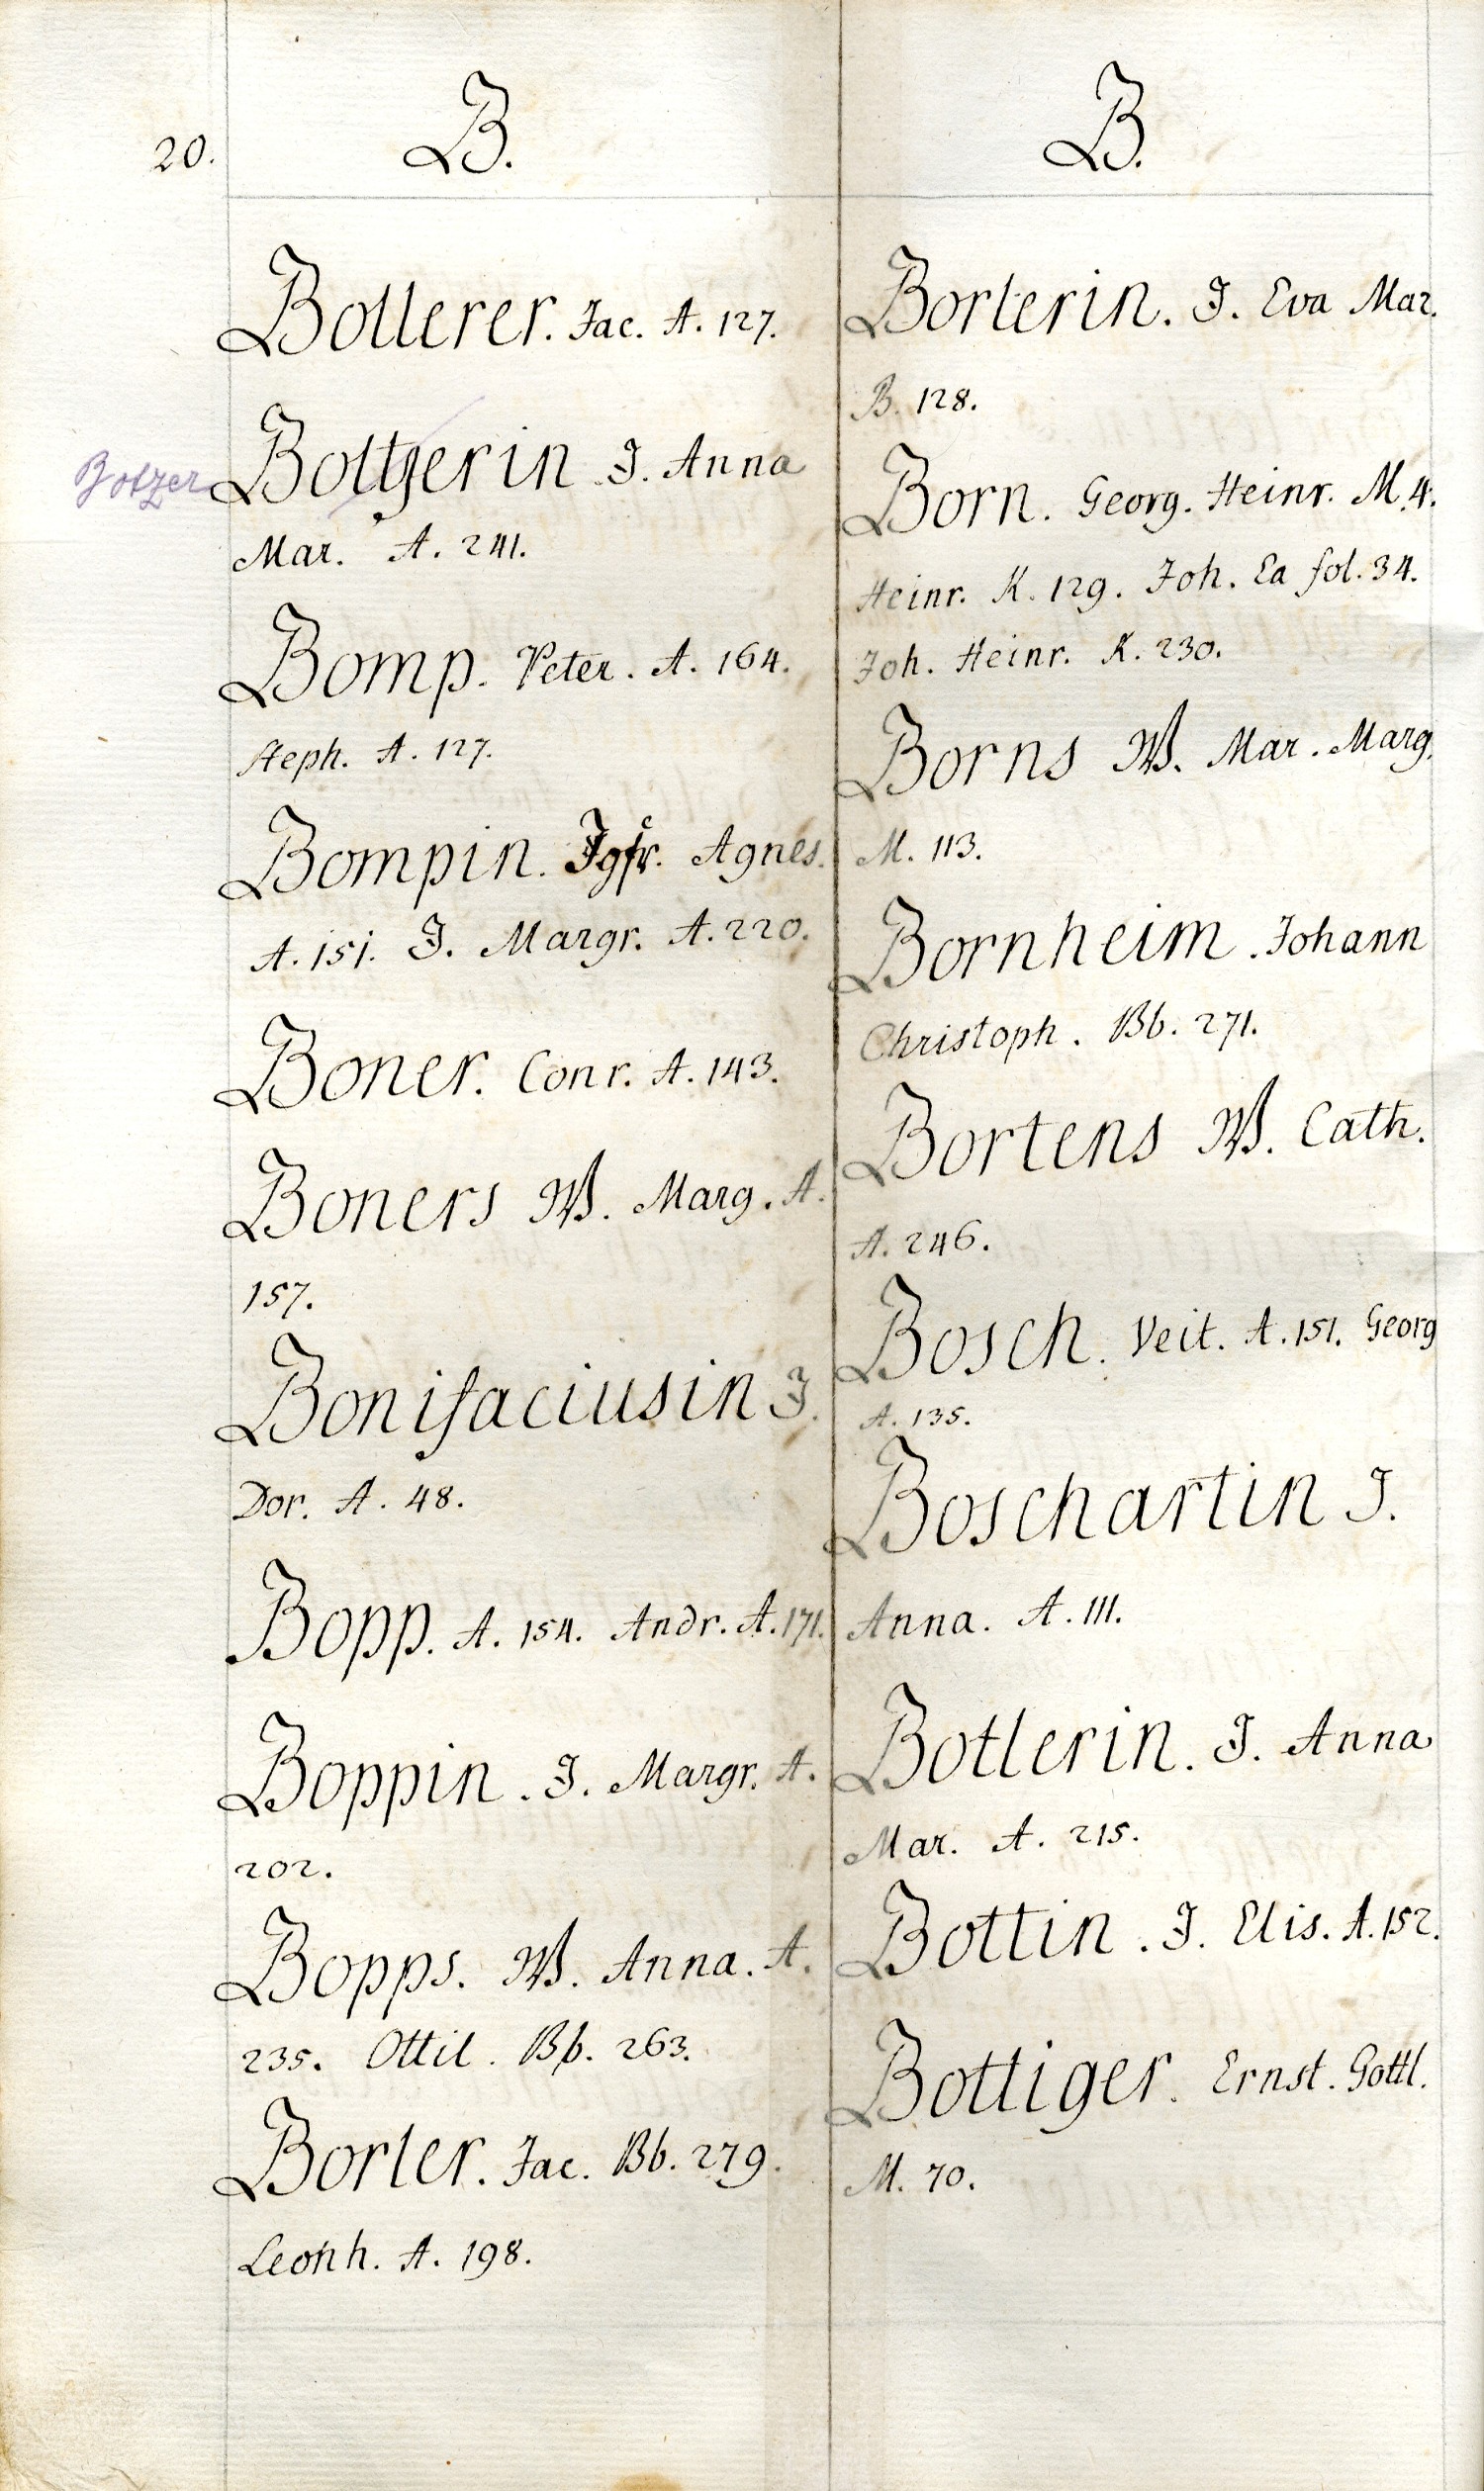 20.
B.
Bollerer. Jac. A. 127.
Botzer
Boltzerin J. Anna
Mar. A. 241.
Bomp. Peter. A. 164.
Steph. A. 127.
Bompin. Jgfr. Agnes.
A. 151. J. Margr. A. 220.
Boner. Conr. A. 143.
Boners W. Marg. A.
157.
Bonifaciusin J.
Dor. A. 48.
Bopp. A. 154. Andr. A. 171.
Boppin. J. Margr. A.
202.
Bopps. W. Anna. A.
235. Ottil. Bb. 263.
Borler. Jac. Bb. 279.
Leonh. A. 198.
B.
Borlerin. J. Eva Mar.
B. 128.
Born. Georg. Heinr. M. 4.
Heinr. K. 129. Joh. Ea fol. 34.
Joh. Heinr. K. 230.
Borns W. Mar. Marg.
M. 113.
Bornheim. Johann
Christoph. Bb. 271.
Bortens W. Cath.
A. 246.
Bosch. Veit. A. 151. Georg
A. 135.
Boschartin J.
Anna. A. 111.
Botlerin. J. Anna
Mar. A. 215.
Bottin. J. Elis. A. 152.
Bottiger. Ernst. Gottl.
M. 70.